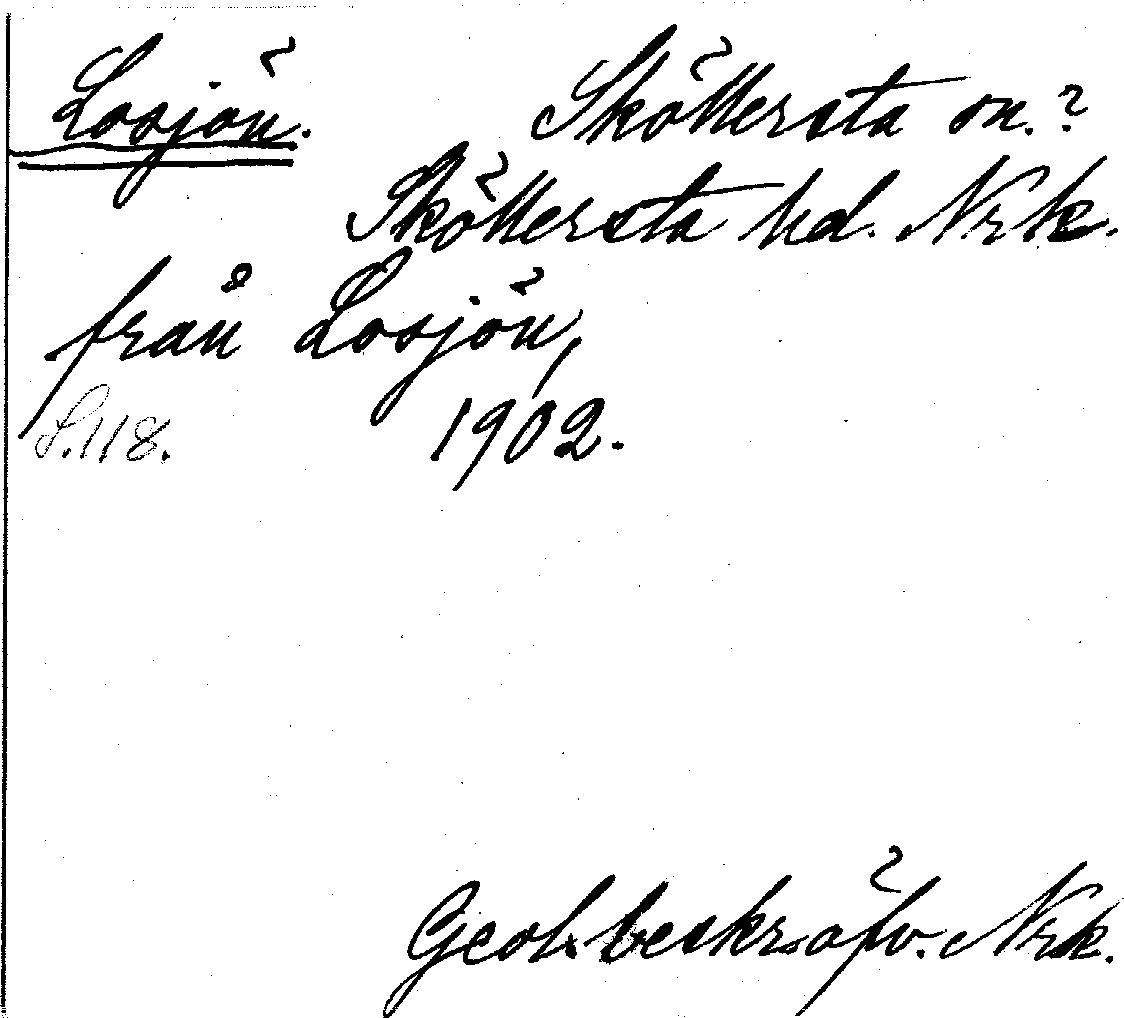 Losjön. Sköllersta sn.?
Sköllersta hd. Nrk.
från Losjön,
S.118. 1902.
Geol. beskr. öfv. Nrk.